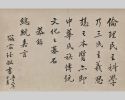 倫理民主科學
乃三民主義思
想之本質亦即
中華民族傳統
文化之基石
恭錄
總統嘉言